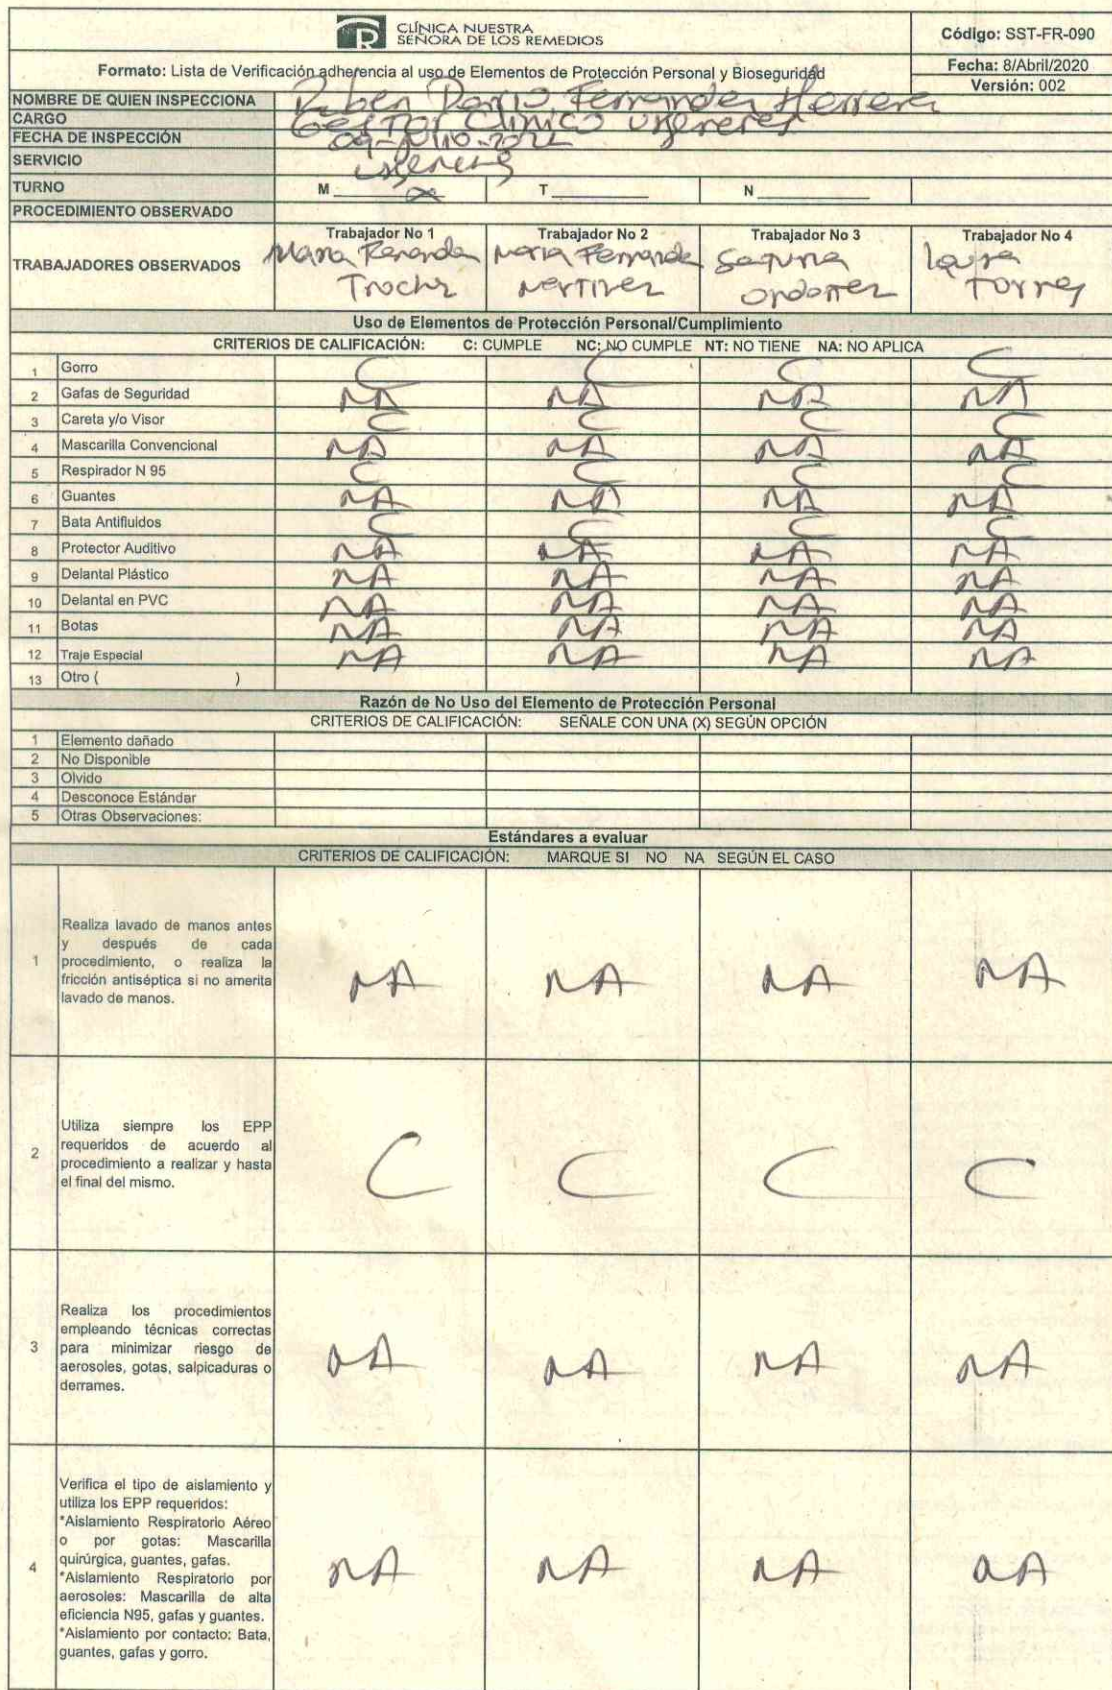 CLÍNICA NUESTRA
SEÑORA DE LOS REMEDIOS
Código: SST-FR-090
Formato: Lista de Verificación adherencia al uso de Elementos de Protección Personal y Bioseguridad
Fecha: 8/Abril/2020
Versión: 002
NOMBRE DE QUIEN INSPECCIONA Ruben Dario Fernandez Herrera
CARGO Gestor Clinico
FECHA DE INSPECCIÓN 09-Julio-202
SERVICIO
TURNO M x T N
PROCEDIMIENTO OBSERVADO
TRABAJADORES OBSERVADOS
Trabajador No 1 Trabajador No 2 Trabajador No 3 Trabajador No 4
Maria Fernanda Maria Fernanda Laura
Martinez Ordoñez Torres
Uso de Elementos de Protección Personal/Cumplimiento
CRITERIOS DE CALIFICACIÓN: C: CUMPLE NC: NO CUMPLE NT: NO TIENE NA: NO APLICA
1 Gorro C C C C
2 Gafas de Seguridad NA NA NA NA
3 Careta y/o Visor C C C C
4 Mascarilla Convencional NA NA NA NA
5 Respirador N 95 C C C C
6 Guantes NA NA NA NA
7 Bata Antifluidos C C C C
8 Protector Auditivo NA NA NA NA
9 Delantal Plástico NA NA NA NA
10 Delantal en PVC NA NA NA NA
11 Botas NA NA NA NA
12 Traje Especial NA NA NA NA
13 Otro ( )
Razón de No Uso del Elemento de Protección Personal
CRITERIOS DE CALIFICACIÓN: SEÑALE CON UNA (X) SEGÚN OPCIÓN
1 Elemento dañado
2 No Disponible
3 Olvido
4 Desconoce Estándar
5 Otras Observaciones:
Estándares a evaluar
CRITERIOS DE CALIFICACIÓN: MARQUE SI NO NA SEGÚN EL CASO
Realiza lavado de manos antes
y después de cada
1 procedimiento, o realiza la
fricción antiséptica si no amerita
lavado de manos.
NA NA NA NA
Utiliza siempre los EPP
2 requeridos de acuerdo al
procedimiento a realizar y hasta
el final del mismo.
C C C C
Realiza los procedimientos
empleando técnicas correctas
3 para minimizar riesgo de
aerosoles, gotas, salpicaduras o
derrames.
NA NA NA NA
Verifica el tipo de aislamiento y
utiliza los EPP requeridos:
*Aislamiento Respiratorio Aéreo
o por gotas: Mascarilla
quirúrgica, guantes, gafas.
4 *Aislamiento Respiratorio por
aerosoles: Mascarilla de alta
eficiencia N95, gafas y guantes.
*Aislamiento por contacto: Bata,
guantes, gafas y gorro.
NA NA NA NA